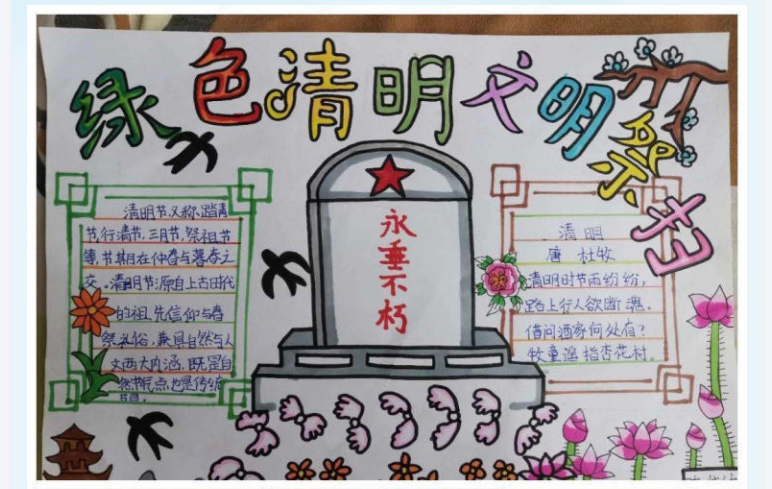 绿色清明文明祭扫
清明节,又称踏青
节,行清节,三月节,祭祖节
等,节期在仲春与暮春之
交。清明节源自上古时代
的祖先信仰与春
祭礼俗,兼具自然与人
文两大内涵,既是自
然节气点,也是传统
节日。
永垂不朽
清明
唐 杜牧
清明时节雨纷纷,
路上行人欲断魂。
借问酒家何处有?
牧童遥指杏花村。